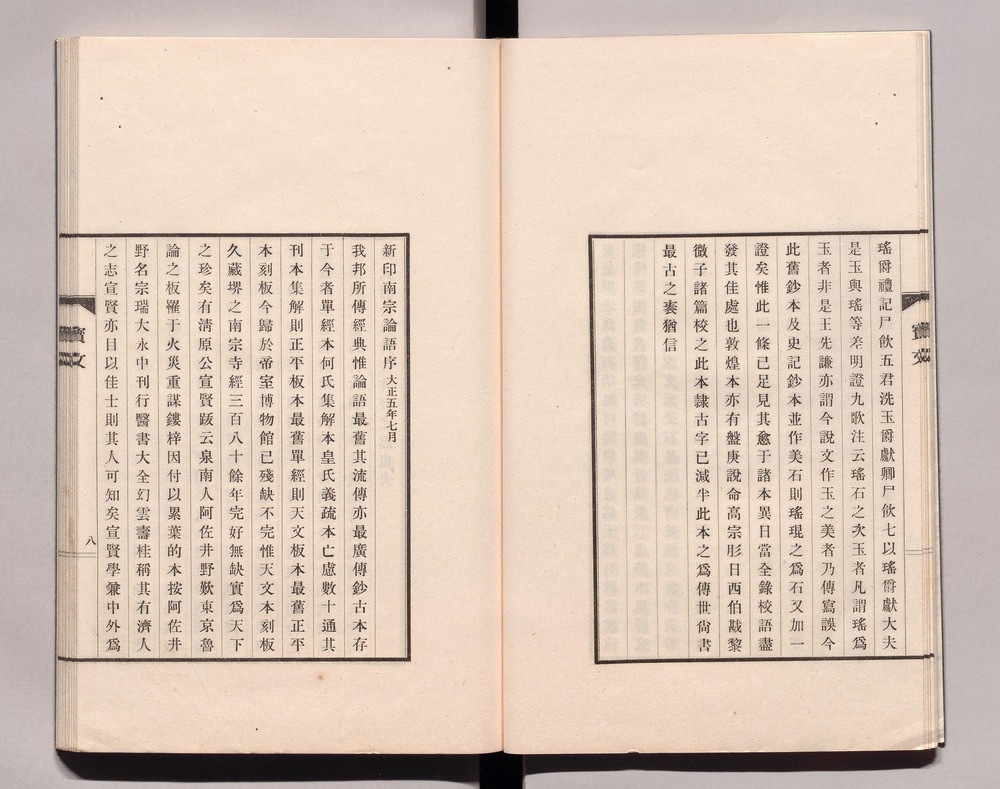 瑤爵禮記尸飮五君洗玉爵獻卿尸飮七以瑤爵獻大夫
是玉與瑤等差明證九歌注云瑤石之次玉者凡謂瑤爲
玉者非是王先謙亦謂今說文作玉之美者乃傳寫誤今
此舊鈔本及史記鈔本並作美石則瑤琨之爲石又加一
證矣惟此一條已足見其愈于諸本異日當全錄校語盡
發其佳處也敦煌本亦有盤庚說命高宗肜日西伯戡黎
微子諸篇校之此本隸古字已減半此本之爲傳世尙書
最古之袠猶信
新印南宗論語序 大正五年七月
我邦所傳經典惟論語最舊其流傳亦最廣傳鈔古本存
于今者單經本何氏集解本皇氏義疏本亡慮數十通其
刊本集解則正平板本最舊單經則天文板本最舊正平
本刻板今歸於帝室博物館已殘缺不完惟天文本刻板
久藏堺之南宗寺經三百八十餘年完好無缺實爲天下
之珍矣有淸原公宣賢跋云泉南人阿佐井野歎東京魯
論之板罹于火災重謀鏤梓因付以累葉的本按阿佐井
野名宗瑞大永中刊行醫書大全幻雲壽桂稱其有濟人
之志宣賢亦目以佳士則其人可知矣宣賢學兼中外爲
八